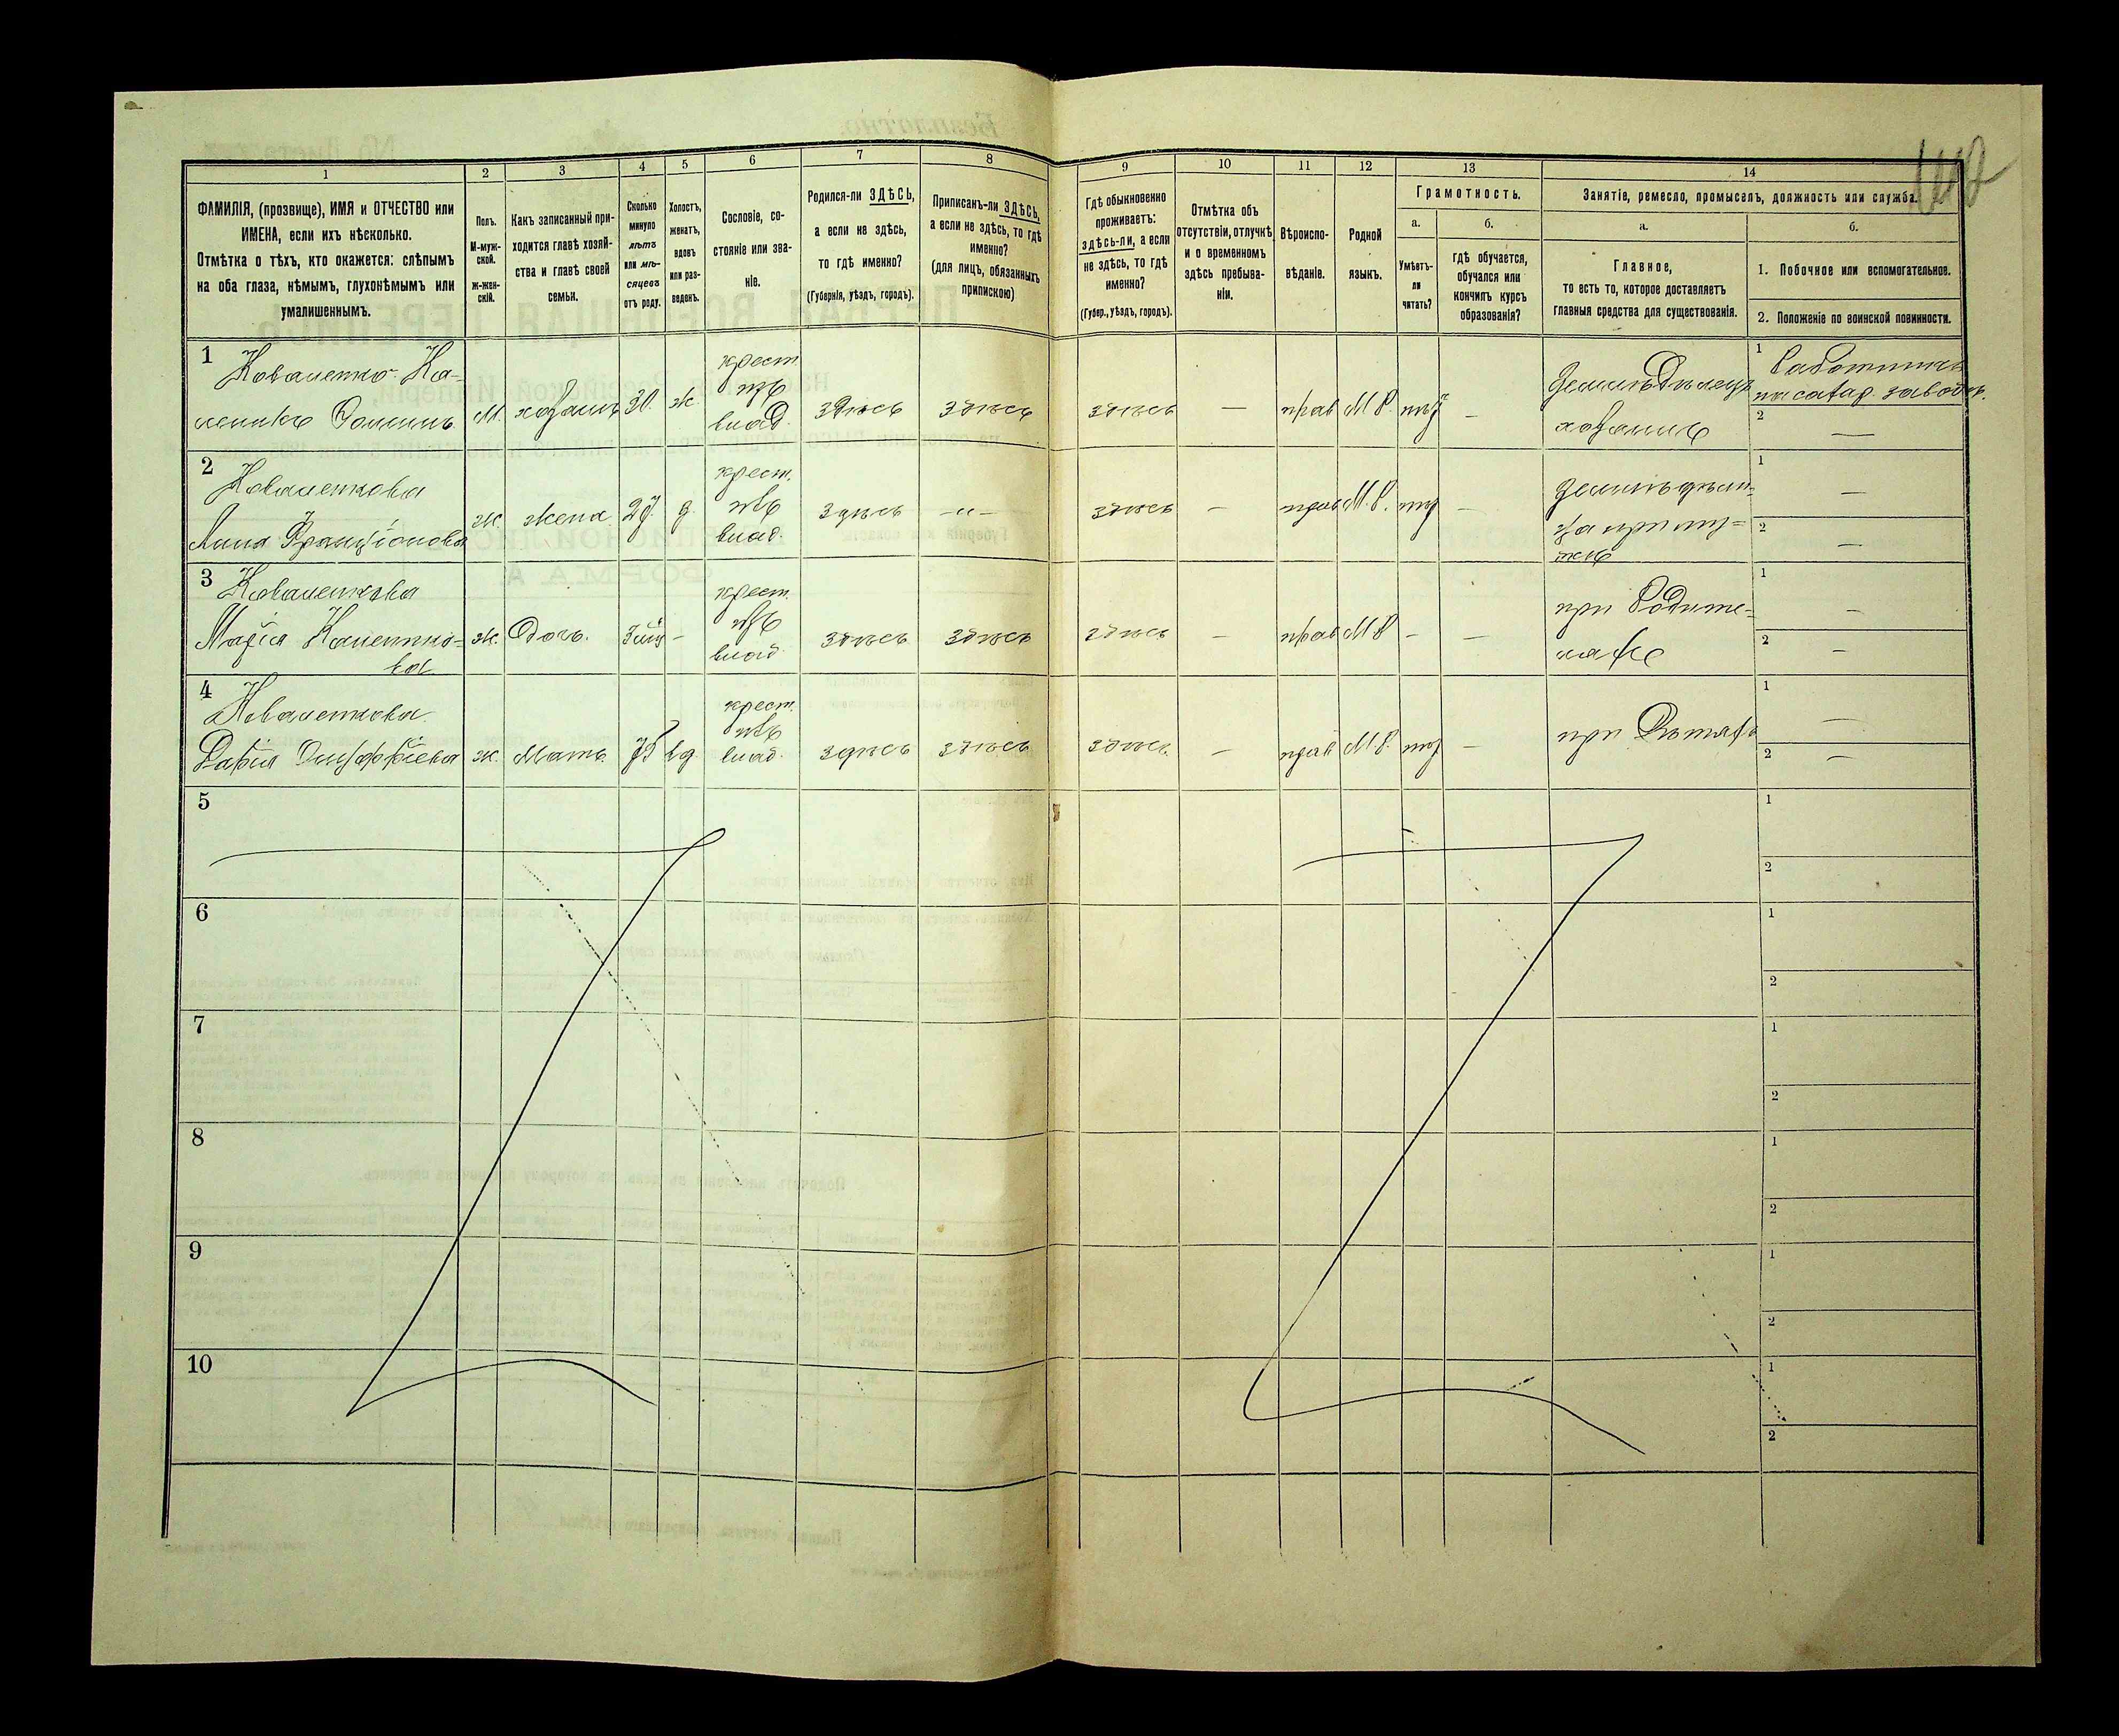 1 2 3 4 5 6 7 8 9 10 11 12 13 14
ФАМИЛІЯ, (прозвище), ИМЯ и ОТЧЕСТВО или
ИМЕНА, если ихъ нѣсколько.
Отмѣтка о тѣхъ, кто окажется: слѣпымъ
на оба глаза, нѣмымъ, глухонѣмымъ или
умалишеннымъ.
Полъ.
М-муж-
ской.
Ж-жен-
скій.
Какъ записанный при-
ходится главѣ хозяй-
ства и главѣ своей
семьи.
Сколько
минуло
лѣтъ
или мѣ-
сяцевъ
отъ роду.
Холостъ,
женатъ,
вдовъ
или раз-
веденъ.
Сословіе, со-
стояніе или зва-
ніе.
Родился-ли ЗДѢСЬ,
а если не здѣсь,
то гдѣ именно?
(Губернія, уѣздъ, городъ).
Приписанъ-ли ЗДѢСЬ,
а если не здѣсь, то гдѣ
именно?
(для лицъ, обязанныхъ
припискою)
Гдѣ обыкновенно
проживаетъ:
здѣсь-ли, а если
не здѣсь, то гдѣ
именно?
(Губер., уѣздъ, городъ).
Отмѣтка объ
отсутствіи, отлучкѣ
и о временномъ
здѣсь пребыва-
ніи.
Вѣроиспо-
вѣданіе.
Родной
языкъ.
Грамотность.
а.
Умѣетъ-
ли
читать?
б.
гдѣ обучается,
обучался или
кончилъ курсъ
образованія?
Занятіе, ремесло, промыселъ, должность или служба.
а.
Главное,
то есть то, которое доставляетъ
главныя средства для существованія.
б.
1. Побочное или вспомогательное.
2. Положеніе по воинской повинности.
1 Коваленко Ка-
леникъ м. хозяинъ 30. ж. крест. изъ влад. здѣсь здѣсь здѣсь — прав М.Р. —
Земледѣлецъ
хозяинъ
1 Работникъ
на сахар. заводѣ.
2 —
2 Коваленкова
Анна ж. жена 27. з. крест. изъ влад. здѣсь —"— здѣсь — прав М.Р. —
при му-
жѣ
1 —
2 —
3 Коваленкова
Марія Каленико-
ва ж. Дочь. — крест. изъ влад. здѣсь здѣсь здѣсь — прав М.Р. — —
при Родите-
ляхъ
1 —
2 —
4 Коваленкова
ж. Мать. 75 вд. крест. изъ влад. здѣсь здѣсь здѣсь. — прав М.Р. —
при Дѣтяхъ
1 —
2 —
5
1
2
6
1
2
7
1
2
8
1
2
9
1
2
10
1
2